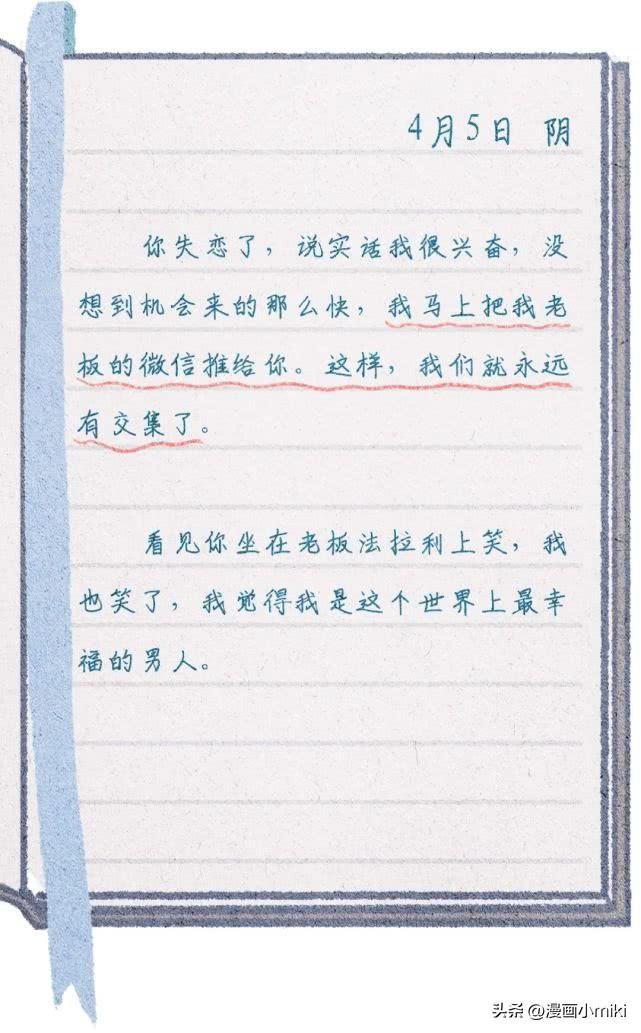 4月5日 阴
你失恋了，说实话我很兴奋，没
想到机会来的那么快，我马上把我老
板的微信推给你。这样，我们就永远
有交集了。
看见你坐在老板法拉利上笑，我
也笑了，我觉得我是这个世界上最幸
福的男人。
头条 @漫画小miki